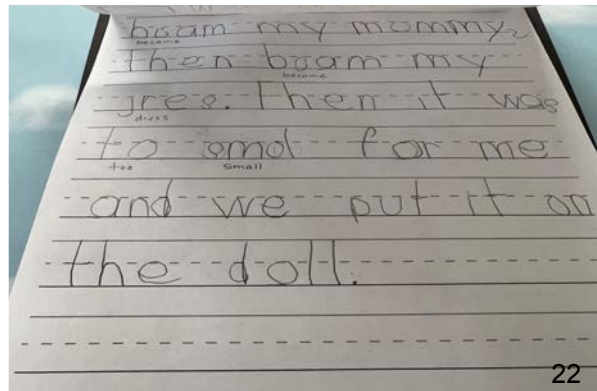 buam my mommy
become
then buam my
become
jres. then it was
dress
to smol for me
too small
and we put it on
the doll.
22